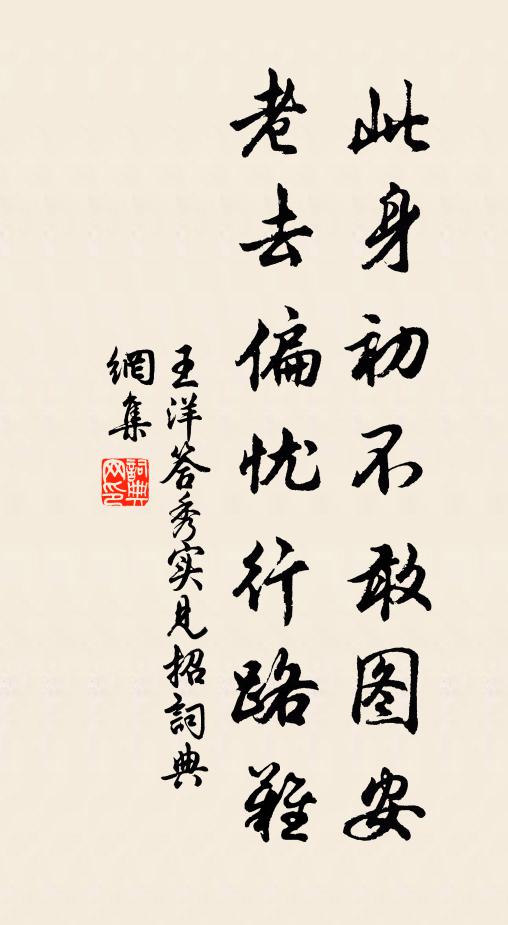 此身初不敢图安
老去偏忧行路难
王洋答秀实见招詞典
網集
詞典网印